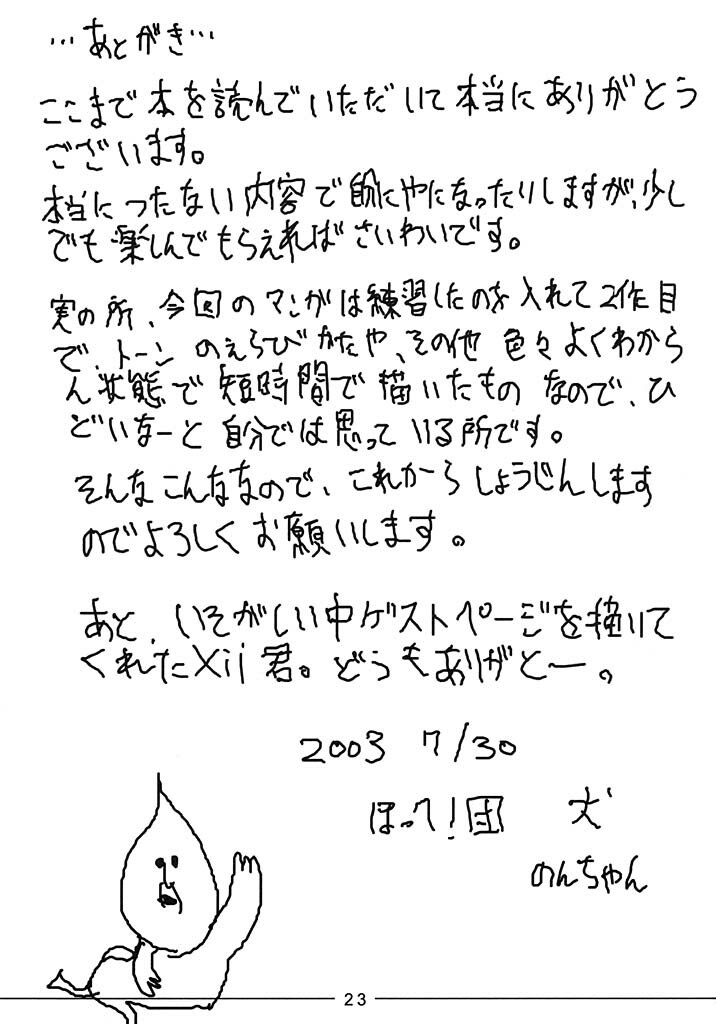 …あとがき…
ここまで本を読んでいただいて本当にありがとう
ございます。
本当につたない内容で的にやになったりしますが、少し
でも楽しんでもらえればさいわいです。
実の所、今回のマンガは練習したのを入れて2作目
で、トーンのえらびかたや、その他 色々よくわから
ん状態で短時間で描いたものなので、ひ
どいなーと自分では思っている所です。
そんなこんななので、これからしょうじんします
のでよろしくお願いします。
あと、いそがしい中ゲストページを描いて
くれたXii君。どうもありがとー。
2003 7/30
ほって!団 犬
のんちゃん
23